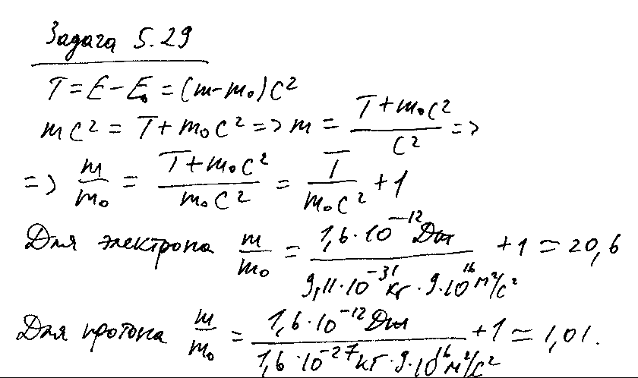 Задача 5.29
T = E - E₀ = (m - m₀)c²
mc² = T + m₀c² => m = (T + m₀c²)/c² =>
=> m/m₀ = (T + m₀c²)/(m₀c²) = T/(m₀c²) + 1
Для электрона m/m₀ = (1,6·10⁻¹² Дж)/(9,11·10⁻³¹ кг · 9·10¹⁶ м²/с²) + 1 = 20,6
Для протона m/m₀ = (1,6·10⁻¹² Дж)/(1,6·10⁻²⁷ кг · 9·10¹⁶ м²/с²) + 1 = 1,01.